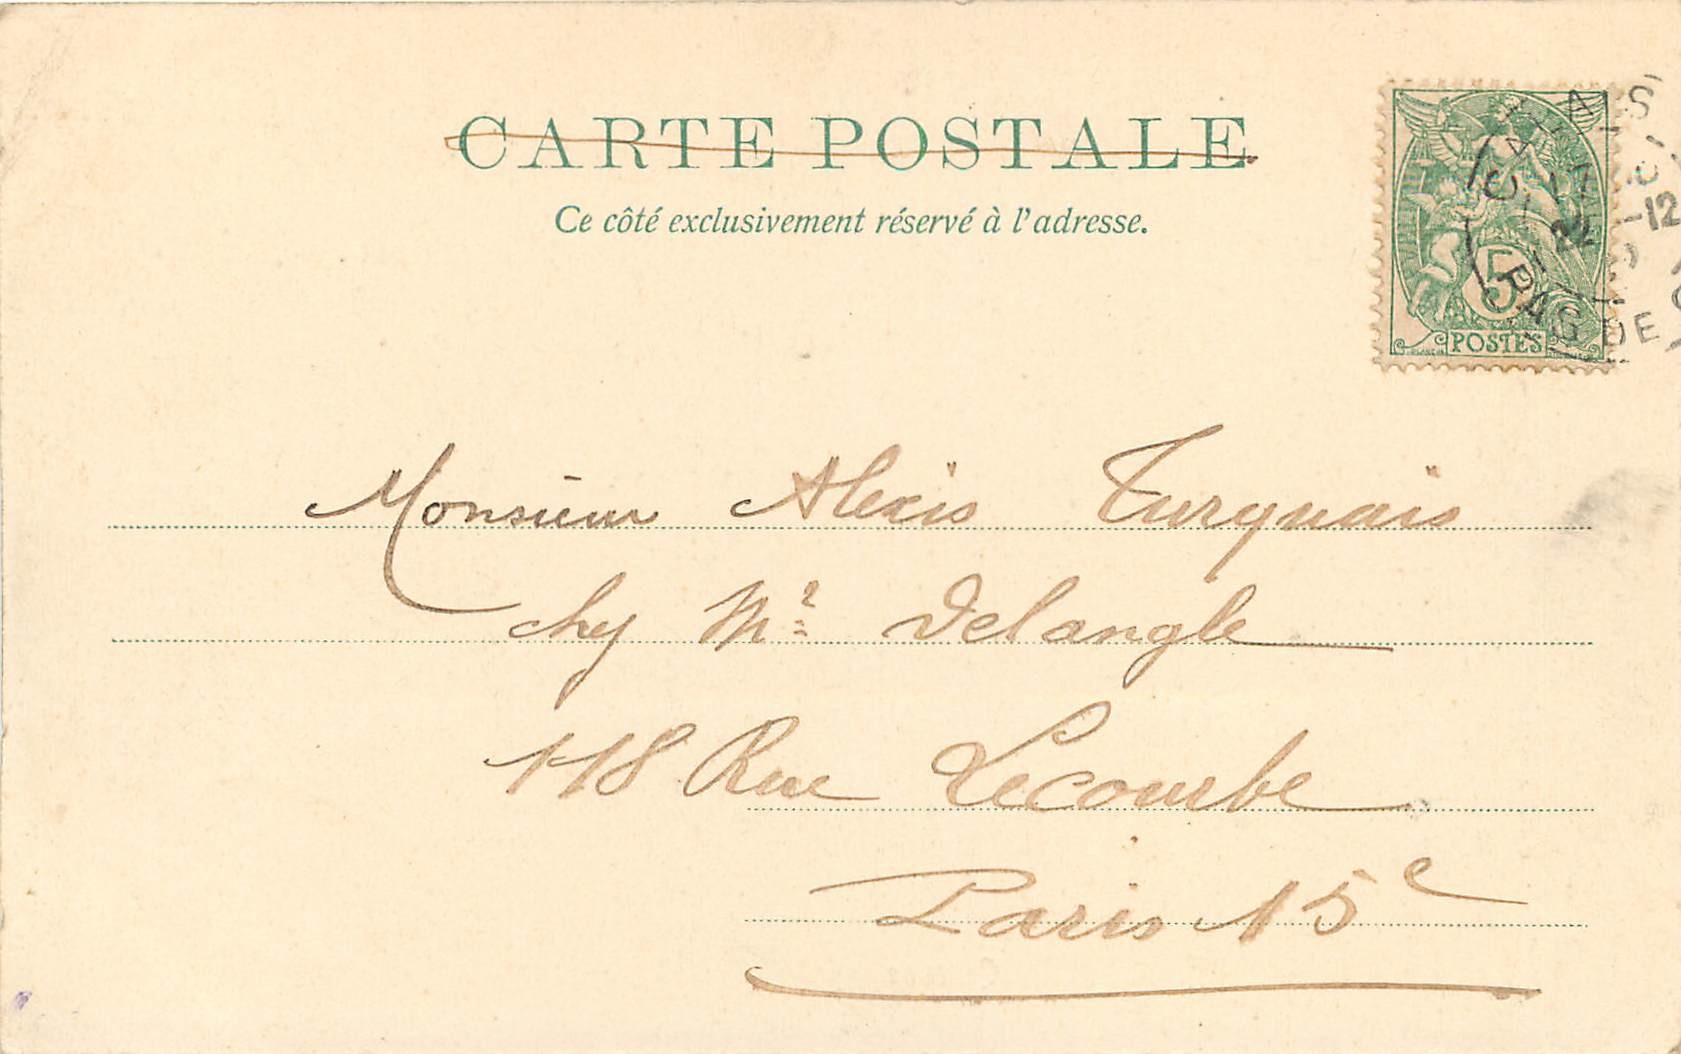 CARTE POSTALE
Ce côté exclusivement réservé à l'adresse.
CALAIS
22 -12
PAS DE
5
POSTES
Monsieur Alexis Turquais
chez Mr Delangle
118 Rue Lecourbe
Paris 15e